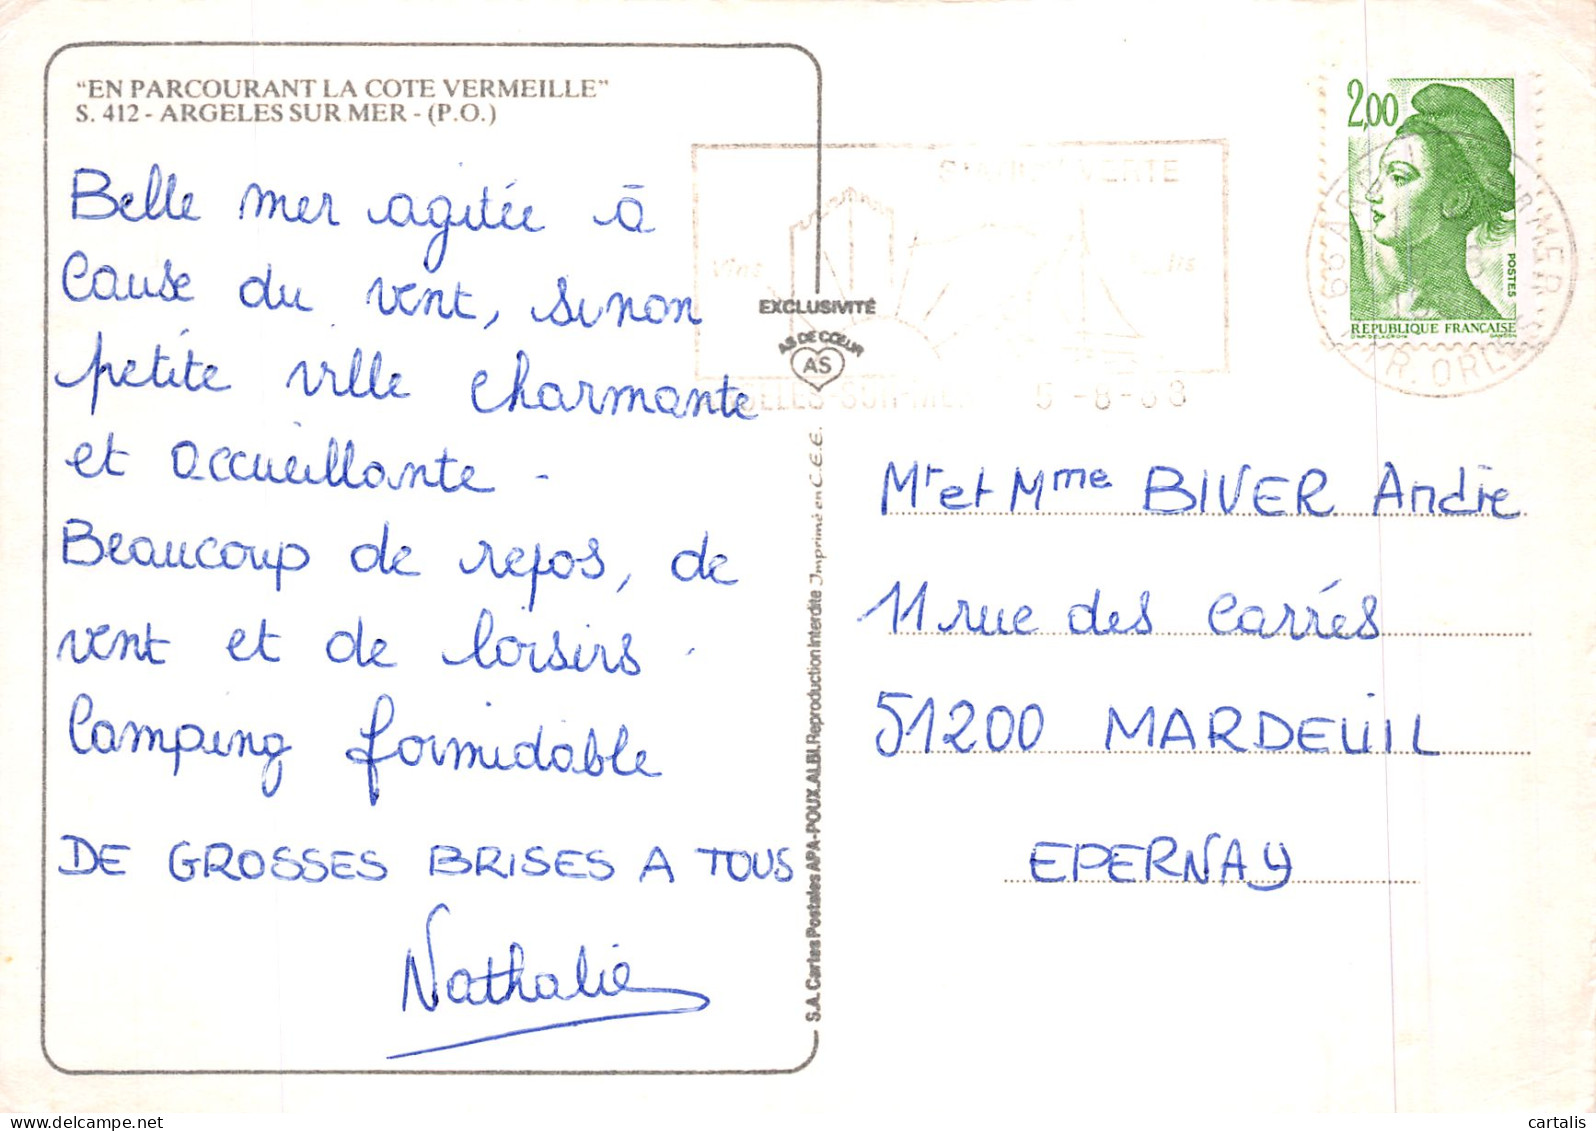 "EN PARCOURANT LA COTE VERMEILLE"
S. 412 - ARGELES SUR MER - (P.O.)
Belle mer agitée à
Cause du vent, sinon
petite ville charmante
et accueillante -
Beaucoup de repos, de
vent et de loisirs.
Camping formidable
DE GROSSES BRISES A TOUS
Nathalie
EXCLUSIVITÉ
AS DE CŒUR
AS
S.A. Cartes Postales APA-POUX. ALBI. Reproduction interdite Imprimé en C.E.E.
VERTE
-8-
2,00
POSTES
REPUBLIQUE FRANÇAISE
Mr et Mme BIVER Andrée
11 rue des Carrés
51200 MARDEUIL
EPERNAY
delcampe.net
cartalis